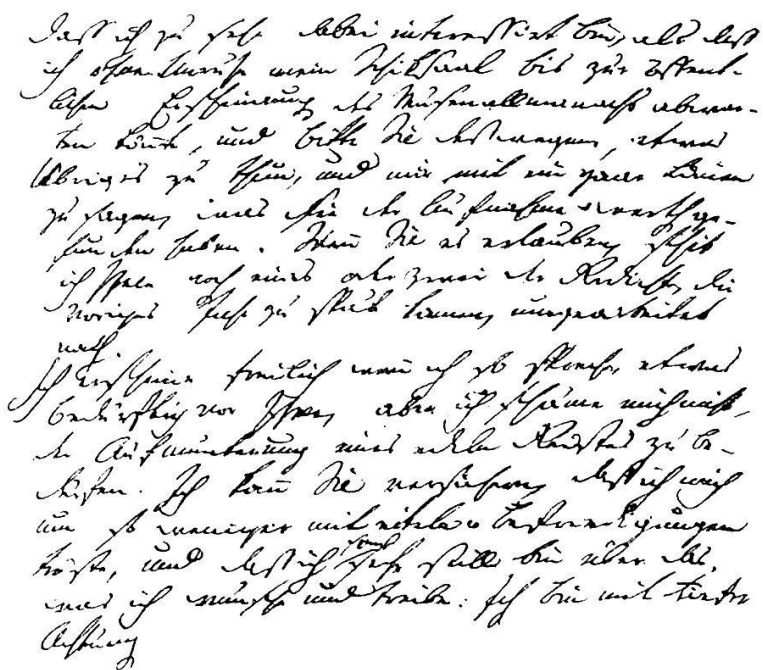 daß ich zu sehr dabei interessirt bin, als daß
ich ohne Unruhe mein Schiksaal bis zur öffent-
lichen Erscheinung des Musenallmanachs abwar-
ten könnte, und bitte Sie deswegen, etwas
Übriges zu thun, und mir mit ein paar Linien
zu sagen, was Sie der Aufnahme werth ge-
funden haben. Wenn Sie es erlauben, schik
ich Ihnen noch eines oder zwei der Gedichte, die
voriges Jahr zu spät kamen, umgearbeitet
nach.
Ich erscheine freilich, wenn ich so spreche, etwas
bedürftig vor Ihnen, aber ich schäme mich nicht,
der Aufmunterung eines edeln Geistes zu be-
dürfen. Ich kann Sie versichern, daß ich mich
um so weniger mit eiteln Befriedigungen
tröste, und daß ich sonst sehr still bin über das,
was ich wünsche und treibe. Ich bin mit tiefster
Achtung